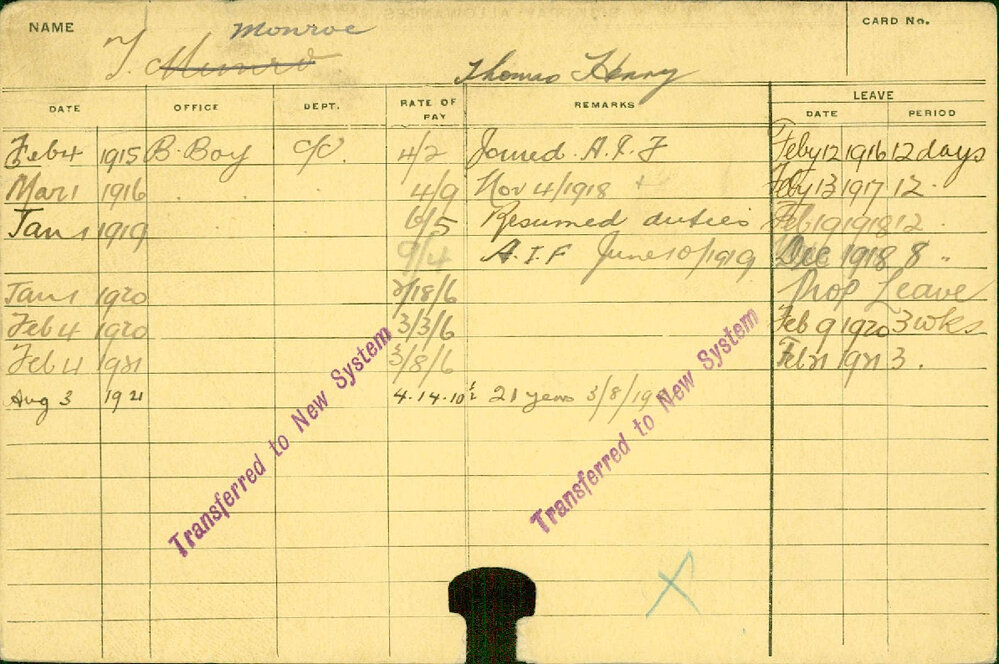 NAME Monroe CARD No.
T. Munro Thomas Henry
LEAVE
DATE OFFICE DEPT. RATE OF PAY REMARKS DATE PERIOD
Feb 4 1915 B. Boy C/O. 4/2 Joined A.I.F Feby 12 1916 12 days
Mar 1 1916 . . . 4/9 Nov 4/1918 + Feby 13 1917 12 .
Jan 1 1919 6/5 Resumed duties Feb 19 1918 12 .
9/4 A.I.F June 10/1919 Dec 1918 8 "
Jan 1 1920 2/18/6 Prop Leave
Feb 4 1920 3/3/6 Feb 9 1920 3 wks
Feb 4 1921 3/8/6 Feb 21 1921 3 .
Aug 3 1921 4.14.10½ 21 years 3/8/19
Transferred to New System
Transferred to New System
X